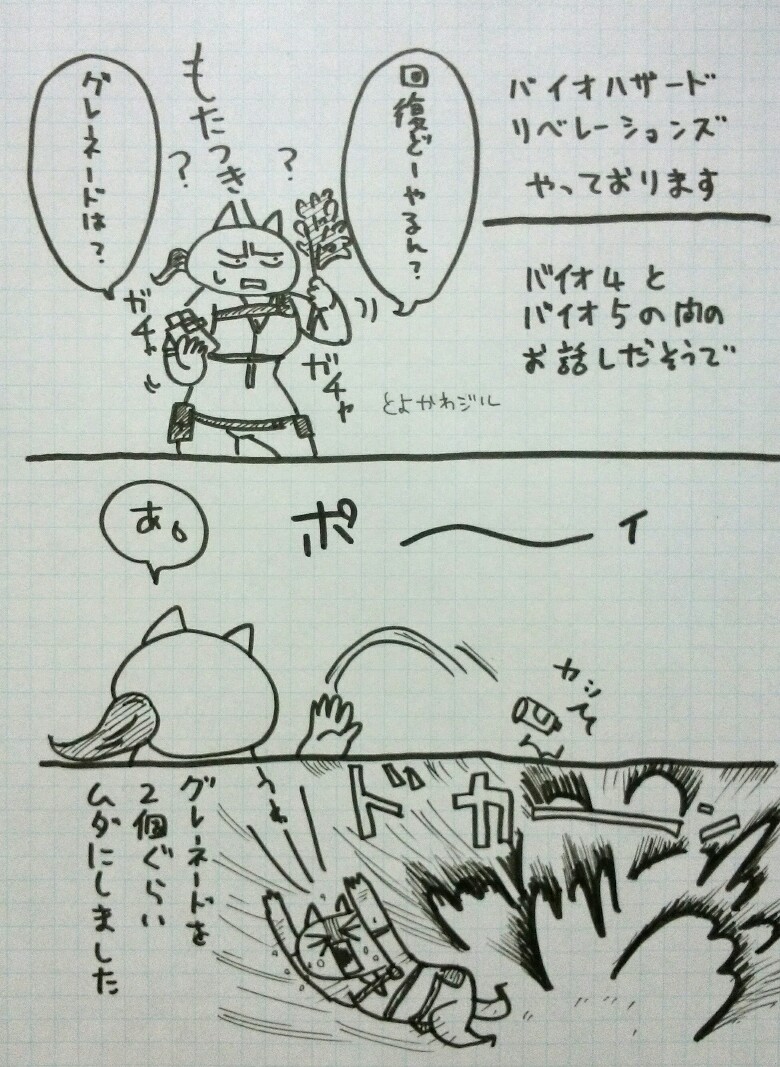 バイオハザード
リベレーションズ
やっております
バイオ4と
バイオ5の間の
お話しだそうで
回復どーやるん?
?
もたつき
?
グレネードは?
ガチャ
ガチャ
とよかわジル
あ。
ポ〜イ
カシ
ドカーン
グレーネードを
2個ぐらい
ムダにしました